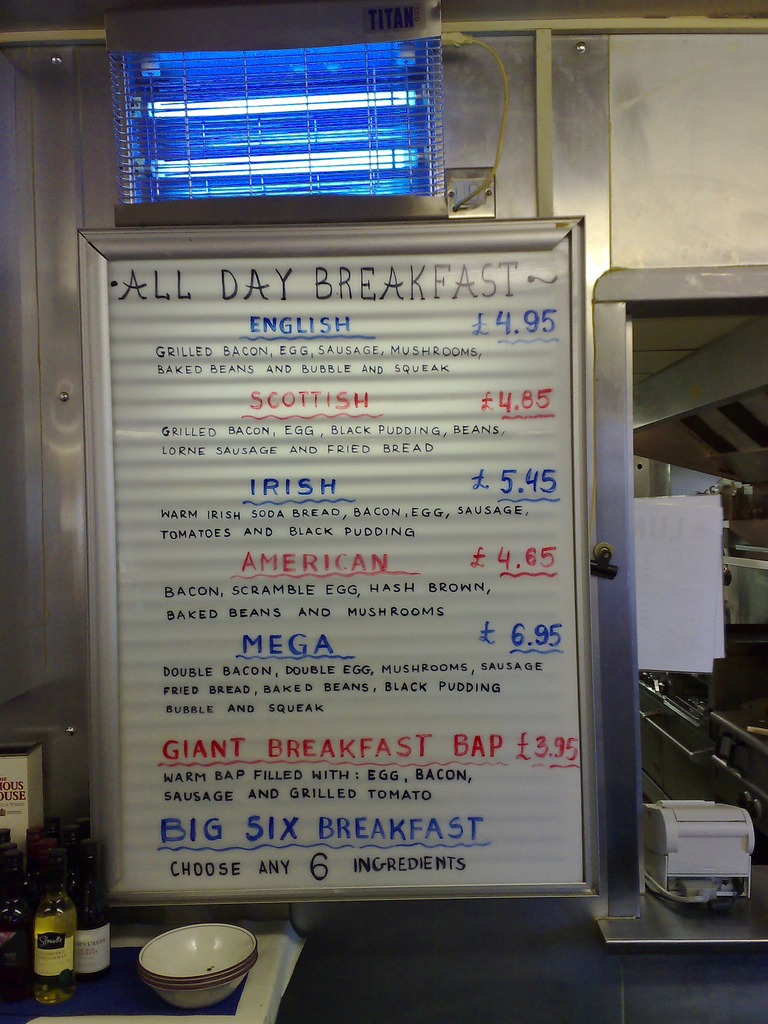 TITAN
·ALL DAY BREAKFAST~
ENGLISH £4.95
GRILLED BACON, EGG, SAUSAGE, MUSHROOMS,
BAKED BEANS AND BUBBLE AND SQUEAK
SCOTTISH £4.85
GRILLED BACON, EGG, BLACK PUDDING, BEANS,
LORNE SAUSAGE AND FRIED BREAD
IRISH £5.45
WARM IRISH SODA BREAD, BACON, EGG, SAUSAGE,
TOMATOES AND BLACK PUDDING
AMERICAN £4.65
BACON, SCRAMBLE EGG, HASH BROWN,
BAKED BEANS AND MUSHROOMS
MEGA £6.95
DOUBLE BACON, DOUBLE EGG, MUSHROOMS, SAUSAGE
FRIED BREAD, BAKED BEANS, BLACK PUDDING
BUBBLE AND SQUEAK
GIANT BREAKFAST BAP £3.95
WARM BAP FILLED WITH: EGG, BACON,
SAUSAGE AND GRILLED TOMATO
BIG SIX BREAKFAST
CHOOSE ANY 6 INGREDIENTS